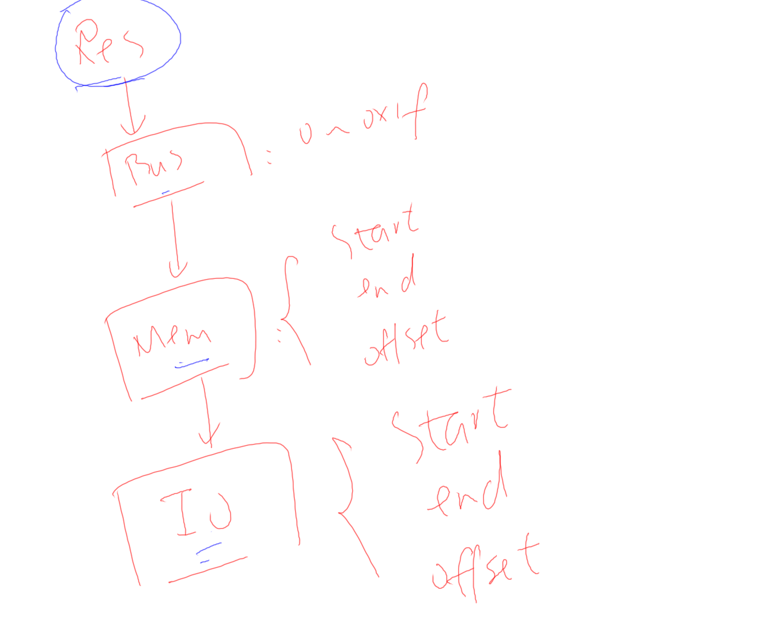 Res
Bus : 0 ~ 0x1f
Mem : { start
end
offset
IO { start
end
offset